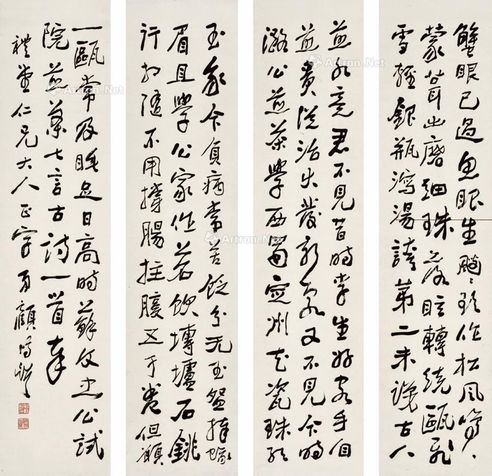 蟹眼已過魚眼生颼颼欲作松風鳴
蒙茸出磨細珠落眩轉繞甌飛
雪輕銀瓶瀉湯誇第二未識古人
煎水意君不見昔時李生好客手自
煎貴從活火發新泉又不見今時
潞公煎茶學西蜀定州花瓷琢紅
玉我今貧病常苦飢分无玉盌捧蛾
眉且學公家作茗飲塼爐石銚
行相隨不用撐腸拄腹五千卷但願
一甌常及睡足日高時蘇文忠公試
院煎茶七言古詩一首奉
禮堂仁兄大人正字弟顧
Artron.Net
Artron.Net